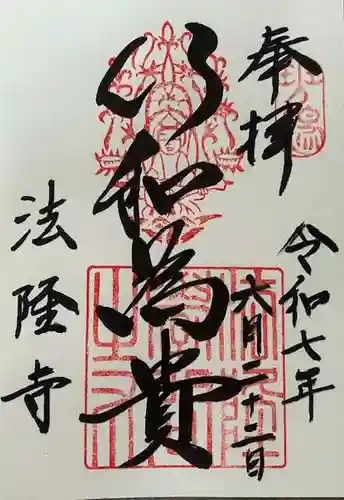 奉拝
令和七年
六月二十二日
以和為貴
法隆寺